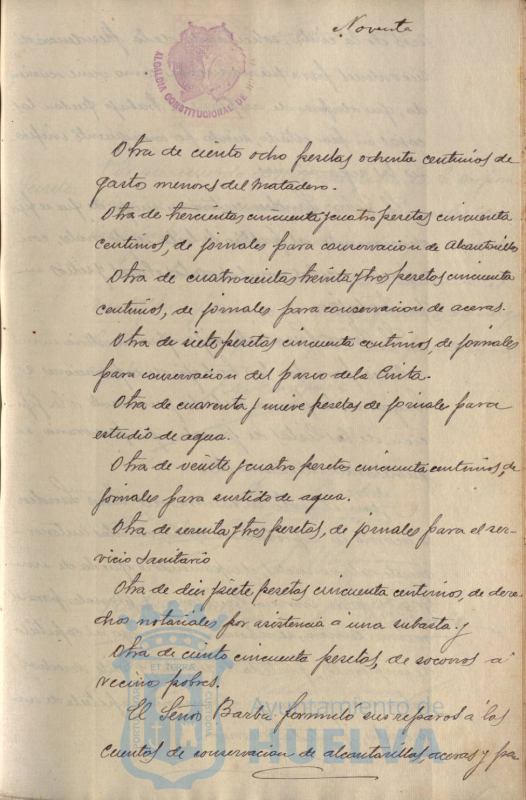 Noventa
ALCALDIA CONSTITUCIONAL DE
Otra de ciento ocho pesetas ochenta centimos de
gastos menores del Matadero.
Otra de trescientas cincuenta y cuatro pesetas cincuenta
centimos, de jornales para conservacion de Alcantarillas
Otra de cuatrocientas treinta y tres pesetas cincuenta
centimos, de jornales para conservacion de aceras.
Otra de siete pesetas cincuenta centimos, de jornales
para conservacion del paseo de la Cinta.
Otra de cuarenta y nueve pesetas de jornales para
estudio de agua.
Otra de veinte y cuatro pesetas cincuenta centimos, de
jornales para surtido de agua.
Otra de sesenta y tres pesetas, de jornales para el ser-
vicio sanitario
Otra de diez y siete pesetas cincuenta centimos, de dere-
chos notariales por asistencia a una subasta. y
Otra de ciento cincuenta pesetas, de socorros a
vecinos pobres.
El Señor Barba formuló sus reparos a las
cuentas de conservacion de alcantarillas, aceras y pa-
ET TERRÆ
Ayuntamiento de
HUELVA